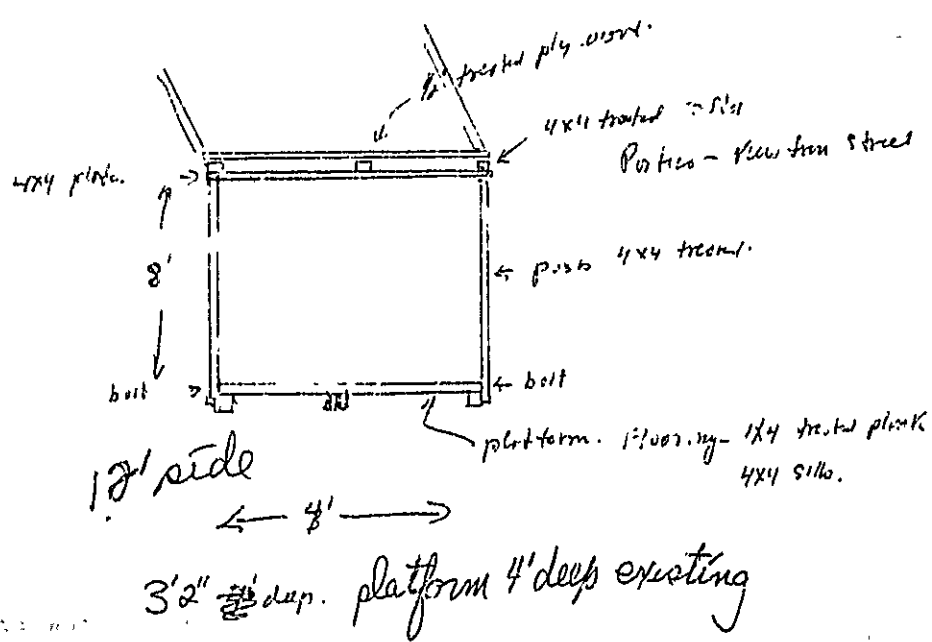 1/2" treated ply wood.
4x4 treated
Portico - View from street
4x4 plate.
8'
posts 4x4 treated.
bolt
bolt
platform. Flooring - 1x4 treated plank
4x4 sills.
12' side
4'
3'2" deep. platform 4' deep existing